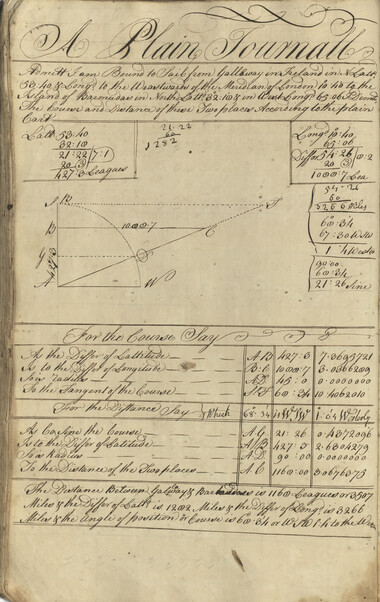 A Plain Journall
Admitt I am Bound to Sail from Gallway in Ireland in N Lattd
53:40 & Longd to the Westward of the Meridian of London 10:40 to the
Island of Barmudas in North Lattd 32:10 & in West Longd 65:06 I Demd
The Course and Distance of these Two places According to the plain
Cart
Lattd 53:40
32:10
21:22 7:1
20 3
427:3 Leagues
21:22
60
1282
Longd 10:40
65:06
Differ 54:26 0:2
20 3
1000:7 Lea
54:26
60
3266 Miles
60:34
67:30 W
90:00
60:34
21:26 Sine
B
1000:7
C
427:3
A
W
For the Course Say
As the Differ of Lattitude A B 427:3 7:3695721
Is to the Differ of Longitude B:C 1000:7 3:036209
So is Radius 45:0 0:0000000
To the Tangent of the Course 10:4062010
For the Distance Say Which
As Co Sine the Course A G 21:26 0:4372096
Is to the Differ of Latitude A B 427:3 2:6304279
So is Radius A D 90:00 0:0000000
To the Distance of the Two places A C 1160:00 3:0676375
The Distance Between Galway & Barbadoes is 1160 Leagues or 3507
Miles & the Differ of Lattd is 1202 Miles & the Differ of Longd is 3266
Miles & the Angle of position or Course is 60:34 or to the West